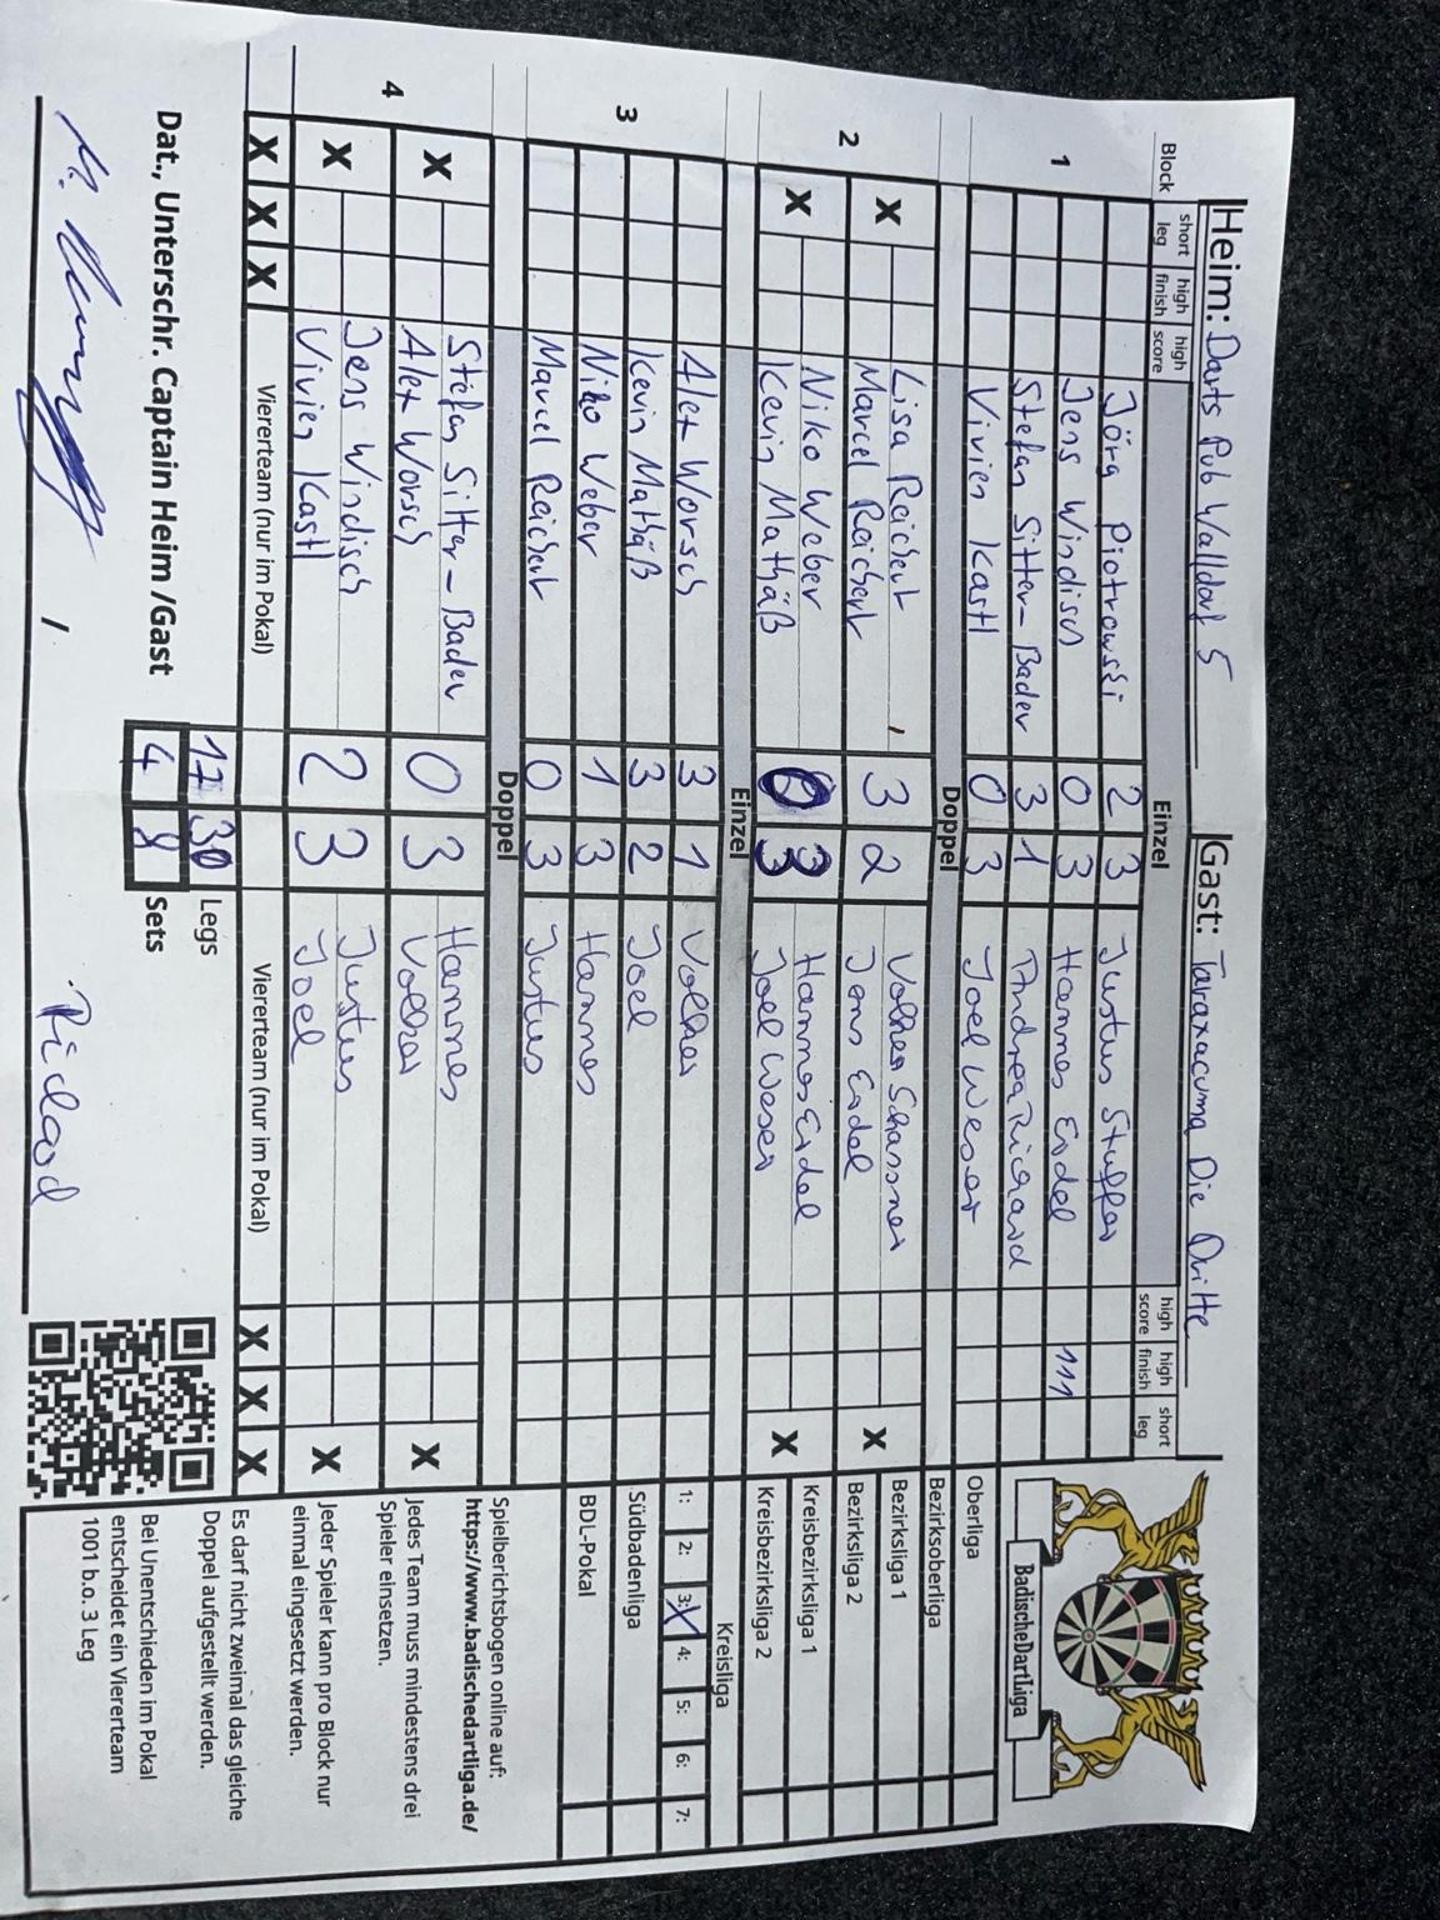 Heim: Darts Pub Walldorf 5 Gast: Taraxacuma Die Dritte
Block short leg high finish high score Einzel high score high finish short leg
1 Jörg Piotrowski 2 3 Justus Stuffer
Jens Windisch 0 3 Hannes Eidel 111
Stefan Sitter-Bader 3 1 Andrea Richard
Vivien Kastl 0 3 Joel Weser
Doppel
2 X Lisa Reichert 3 2 Volker Schassner X
Marcel Reichert Jens Eidel
X Niko Weber 0 3 Hannes Eidel X
Kevin Mathäß Joel Weser
Einzel
3 Alex Worsch 3 1 Volker
Kevin Mathäß 3 2 Joel
Niko Weber 1 3 Hannes
Marcel Reichert 0 3 Justus
Doppel
4 X Stefan Sitter-Bader 0 3 Hannes X
Alex Worsch Volker
X Jens Windisch 2 3 Justus X
Vivien Kastl Joel
X X X Viererteam (nur im Pokal) Viererteam (nurr im Pokal) X X X
17 30 Legs
Dat., Unterschr. Captain Heim /Gast 4 8 Sets
/ Richard
BadischeDartLiga
Oberliga
Bezirksoberliga
Bezirksliga 1
Bezirksliga 2
Kreisbezirksliga 1
Kreisbezirksliga 2
Kreisliga
1: 2: 3: X 4: 5: 6: 7:
Südbadenliga
BDL-Pokal
Spielberichtsbogen online auf:
https://www.badischedartliga.de/
Jedes Team muss mindestens drei
Spieler einsetzen.
Jeder Spieler kann pro Block nur
einmal eingesetzt werden.
Es darf nicht zweimal das gleiche
Doppel aufgestellt werden.
Bei Unentschieden im Pokal
entscheidet ein Viererteam
1001 b.o. 3 Leg